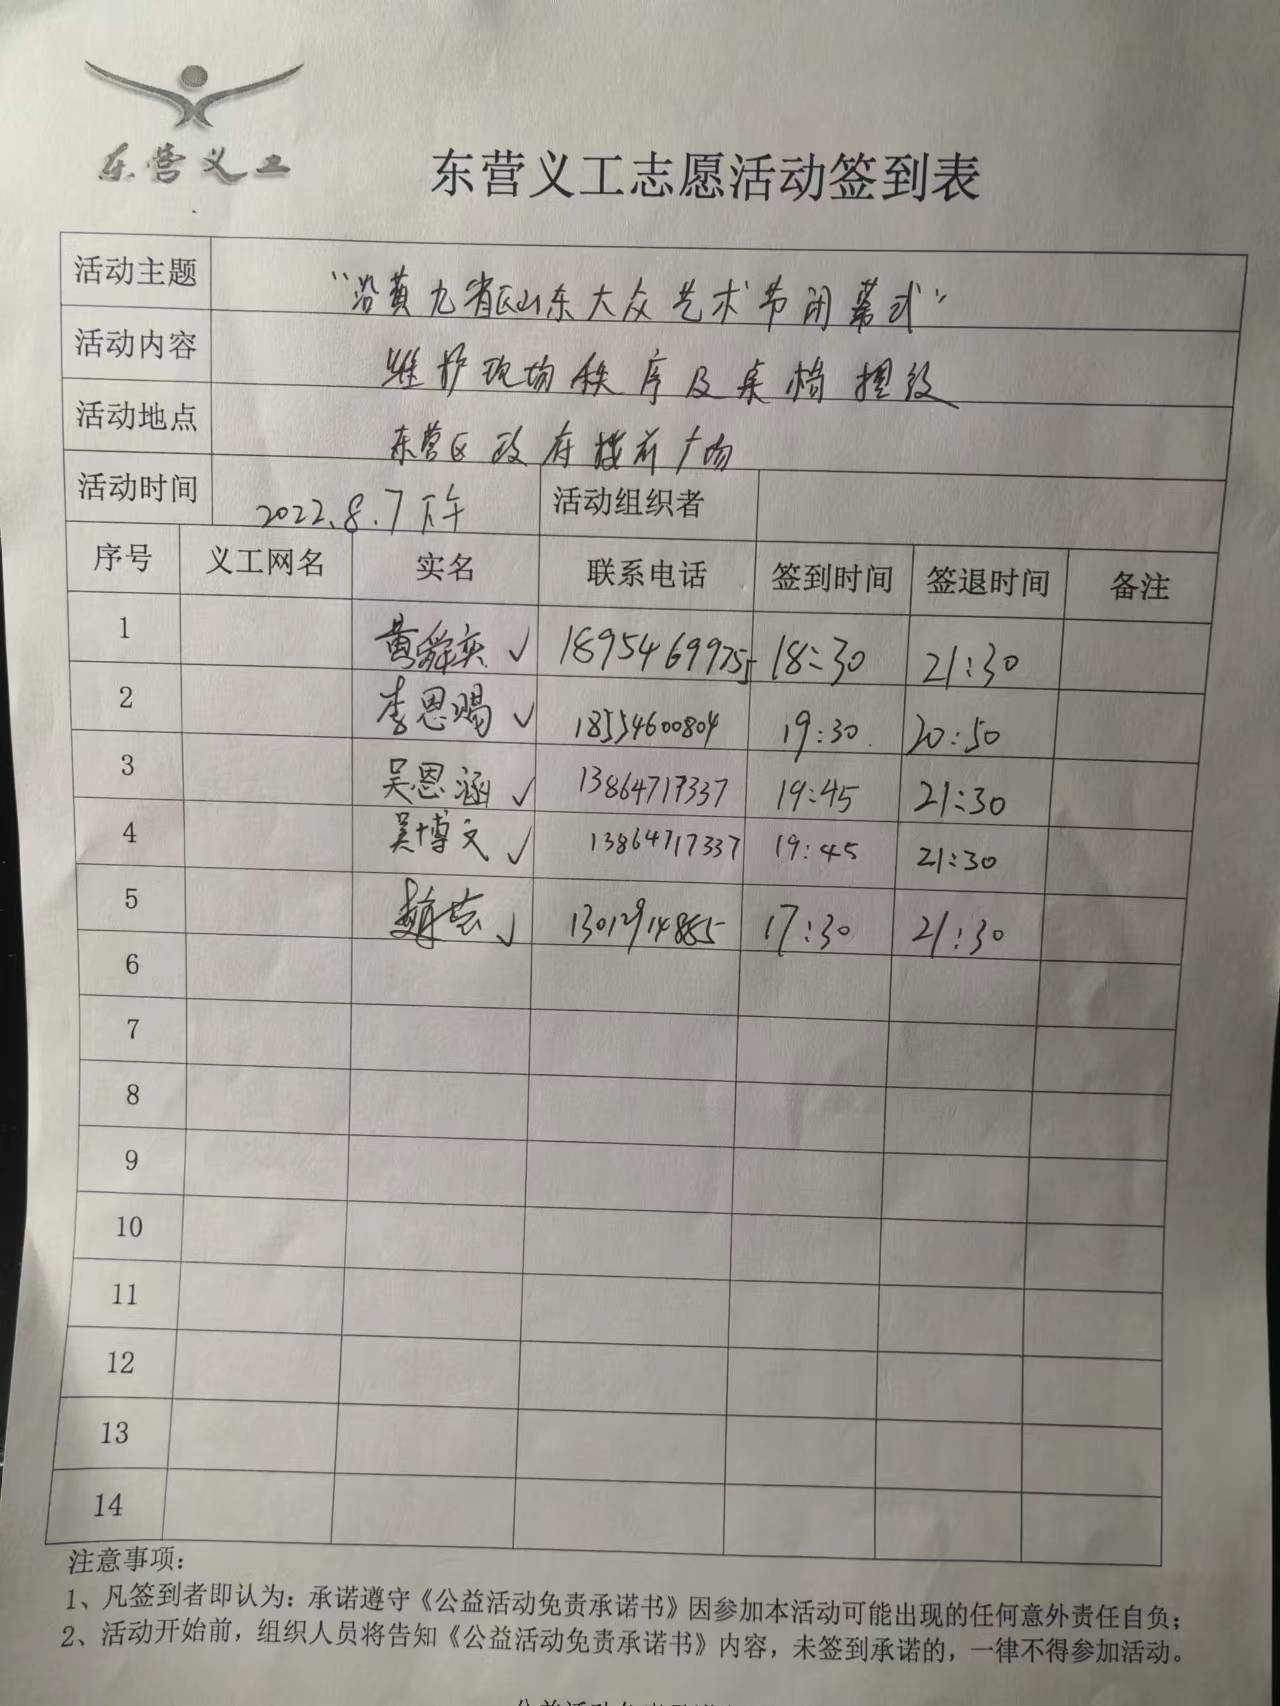 东营义工
东营义工志愿活动签到表
活动主题 “沿黄九省区山东大众艺术节闭幕式”
活动内容 维护现场秩序及桌椅摆放
活动地点 东营区政府楼前广场
活动时间 2022.8.7下午 活动组织者
序号 义工网名 实名 联系电话 签到时间 签退时间 备注
1 黄舜奕 ✓ 18954699755 18:30 21:30
2 李恩赐 ✓ 18554600804 19:30 20:50
3 吴恩涵 ✓ 13864717337 19:45 21:30
4 吴博文 ✓ 13864717337 19:45 21:30
5 ✓ 13012914885 17:30 21:30
6
7
8
9
10
11
12
13
14
注意事项：
1、凡签到者即认为：承诺遵守《公益活动免责承诺书》因参加本活动可能出现的任何意外责任自负；
2、活动开始前，组织人员将告知《公益活动免责承诺书》内容，未签到承诺的，一律不得参加活动。